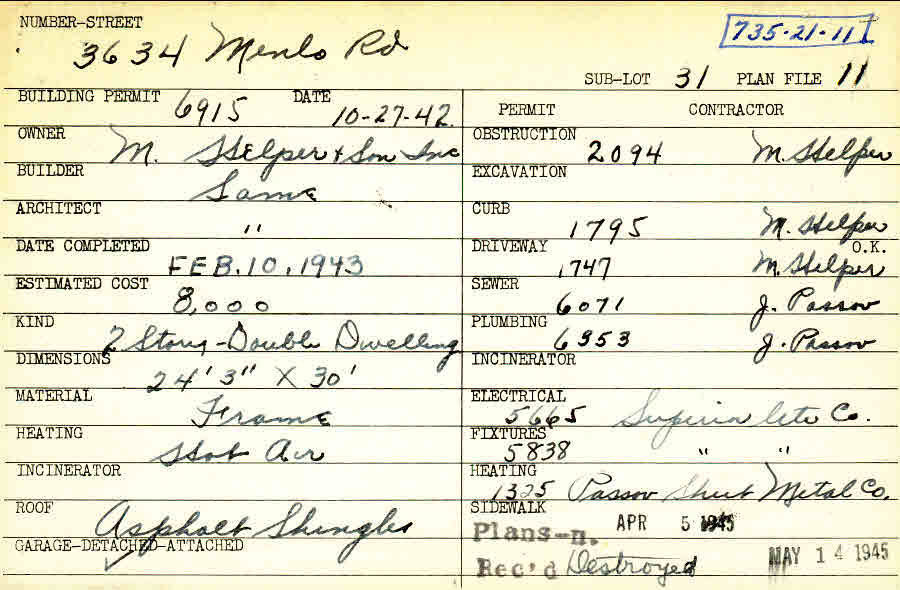 NUMBER-STREET
3634 Menlo Rd
735-21-11
SUB-LOT 31 PLAN FILE 11
BUILDING PERMIT 6915 DATE 10-27-42.
OWNER M. Helper & Son Inc
BUILDER Same
ARCHITECT "
DATE COMPLETED FEB. 10, 1943
ESTIMATED COST 8,000
KIND 2 Story-Double Dwelling
DIMENSIONS 24' 3" X 30'
MATERIAL Frame
HEATING Hot Air
INCINERATOR
ROOF Asphalt Shingles
GARAGE-DETACHED-ATTACHED
PERMIT CONTRACTOR
OBSTRUCTION 2094 M. Helper
EXCAVATION
CURB 1795 M. Helper
DRIVEWAY 1747 M. Helper O.K.
SEWER 6071 J. Passov
PLUMBING 6353 J. Passov
INCINERATOR
ELECTRICAL 5665 Superior Co.
FIXTURES 5838 " "
HEATING 1325 Passov Sheet Metal Co.
SIDEWALK APR 5 1945
Plans-n.
Rec'd Destroyed MAY 14 1945